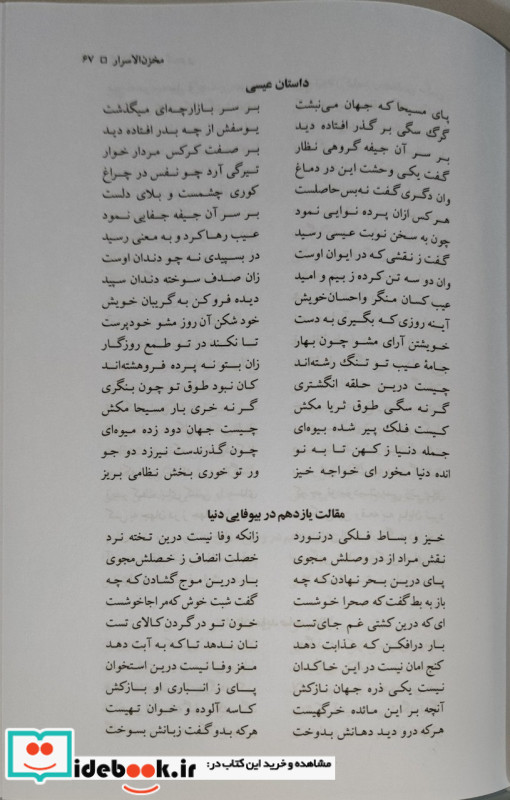 مخزن‌الاسرار □ ۶۷
داستان عیسی
پای مسیحا که جهان می‌نبشت بر سر بازارچه‌ای میگذشت
گرگ سگی بر گذر افتاده دید یوسفش از چه بدر افتاده دید
بر سر آن جیفه گروهی نظار بر صفت کرکس مردار خوار
گفت یکی وحشت این در دماغ تیرگی آرد چو نفس در چراغ
وان دگری گفت نه‌بس حاصلست کوری چشمست و بلای دلست
هر کس ازان پرده نوایی نمود بر سر آن جیفه جفایی نمود
چون به سخن نوبت عیسی رسید عیب رها کرد و به معنی رسید
گفت ز نقشی که در ایوان اوست در بسپیدی نه چو دندان اوست
وان دو سه تن کرده ز بیم و امید زان صدف سوخته دندان سپید
عیب کسان منگر و احسان خویش دیده فرو کن به گریبان خویش
آینه روزی که بگیری به دست خود شکن آن روز مشو خودپرست
خویشتن آرای مشو چون بهار تا نکند در تو طمع روزگار
جامهٔ عیب تو تنگ رشته‌اند زان بتو نه پرده فروهشته‌اند
چیست درین حلقه انگشتری کان نبود طوق تو چون بنگری
گر نه سگی طوق ثریا مکش گر نه خری بار مسیحا مکش
کیست فلک پیر شده بیوه‌ای چیست جهان دود زده میوه‌ای
جمله دنیا ز کهن تا به نو چون گذرندست نیرزد دو جو
انده دنیا مخور ای خواجه خیز ور تو خوری بخش نظامی بریز
مقالت یازدهم در بیوفایی دنیا
خیز و بساط فلکی درنورد زانکه وفا نیست درین تخته نرد
نقش مراد از در وصلش مجوی خصلت انصاف ز خصلش مجوی
پای درین بحر نهادن که چه بار درین موج گشادن که چه
باز به بط گفت که صحرا خوشست گفت شبت خوش که مرا جاخوشست
ای که درین کشتی غم جای تست خون تو در گردن کالای تست
بار درافکن که عذابت دهد نان ندهد تا که به آبت دهد
کنج امان نیست در این خاکدان مغز وفا نیست درین استخوان
نیست یکی ذره جهان نازکش پای ز انباری او بازکش
آنچه بر این مائده خرگهیست کاسه آلوده و خوان تهیست
هرکه درو دید دهانش بدوخت هرکه بدو گفت زبانش بسوخت
مشاهده و خرید این کتاب در:
idebook.ir